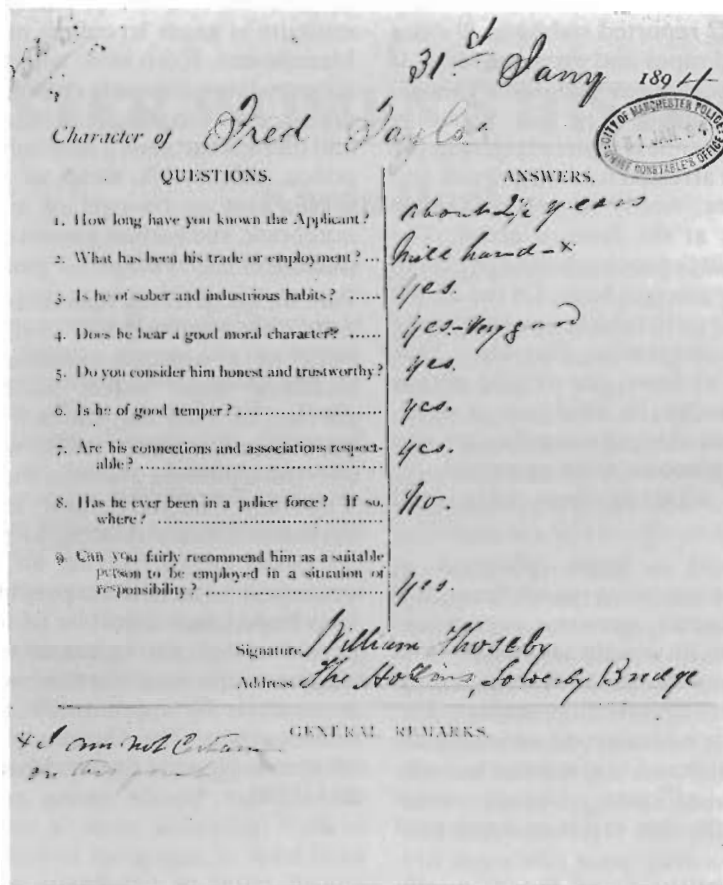 31st Jany 1894
CITY OF MANCHESTER POLICE
31 JAN 94
CHIEF CONSTABLE'S OFFICE
Character of Fred Taylor
QUESTIONS. ANSWERS.
1. How long have you known the Applicant? About 2½ years
2. What has been his trade or employment?... Mill hand - x
3. Is he of sober and industrious habits? ...... Yes.
4. Does he bear a good moral character? ...... Yes - Very good
5. Do you consider him honest and trustworthy? Yes.
6. Is he of good temper? .............................. Yes.
7. Are his connections and associations respect-
able? .......................................... Yes.
8. Has he ever been in a police force? If so,
where? ...................................... No.
9. Can you fairly recommend him as a suitable
person to be employed in a situation of
responsibility? .............................. Yes
Signature William Thoseby
Address The Hollins, Sowerby Bridge
GENERAL REMARKS.
x I am not Certain
on this point